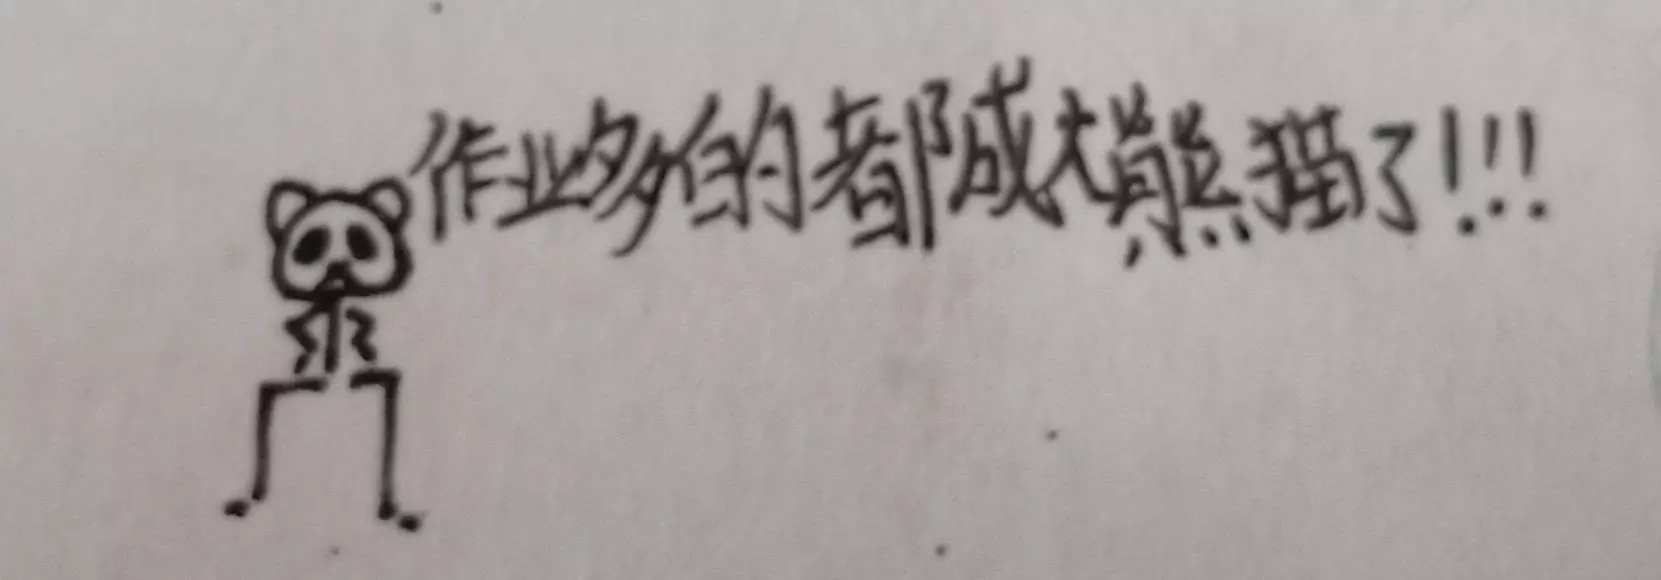 作业多的都成大熊猫了!!!